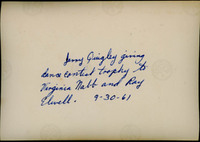 Jerry Quigley giving
dance contest trophy to
Virginia Nabb and Ray
Elwell. 9-30-61